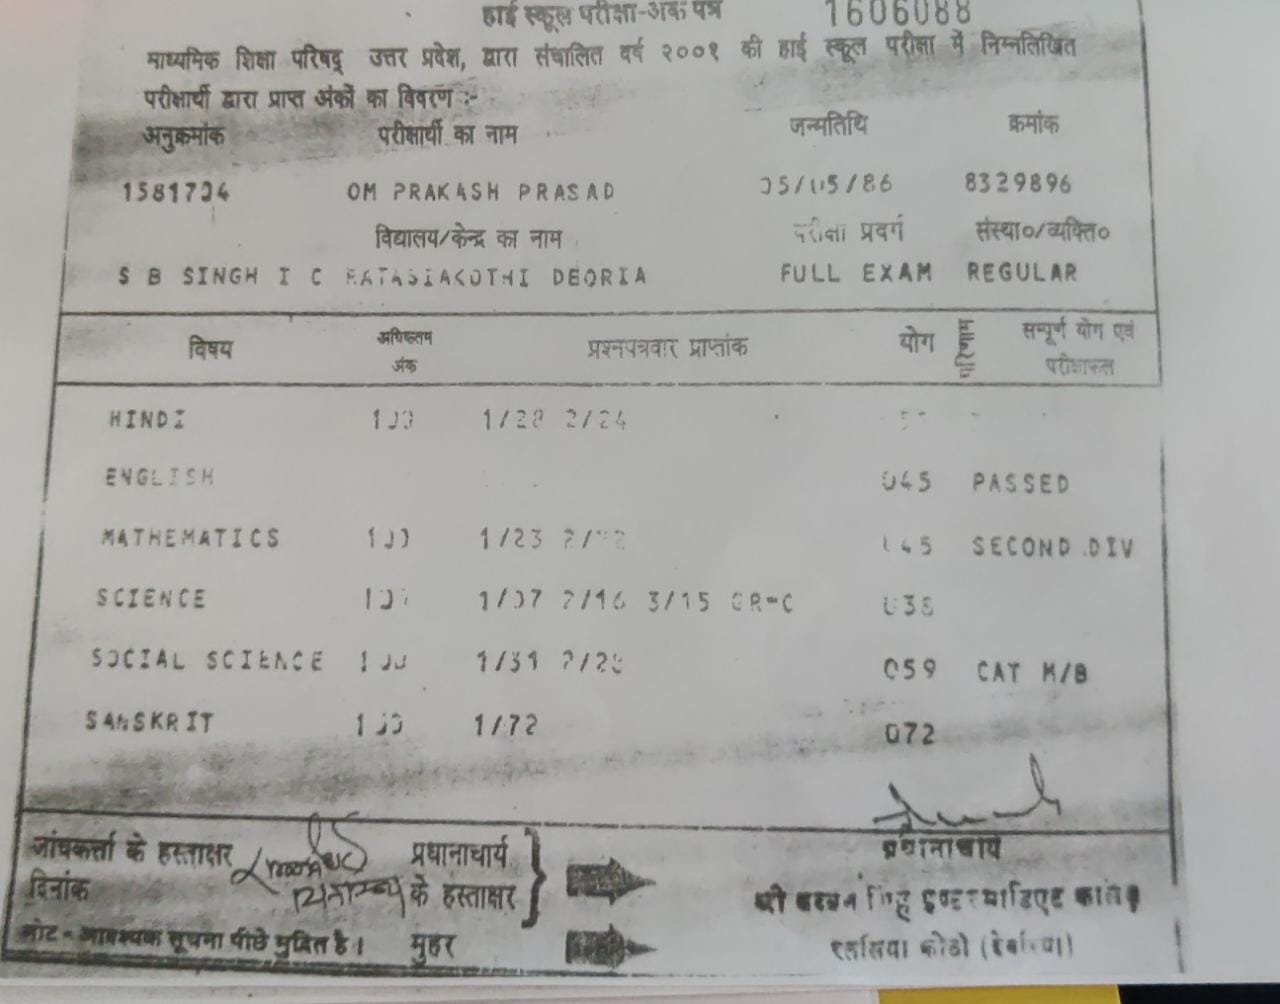 हाई स्कूल परीक्षा-अंक पत्र 1606088
माध्यमिक शिक्षा परिषद् उत्तर प्रदेश, द्वारा संचालित वर्ष २००१ की हाई स्कूल परीक्षा में निम्नलिखित
परीक्षार्थी द्वारा प्राप्त अंकों का विवरण :-
अनुक्रमांक परीक्षार्थी का नाम जन्मतिथि क्रमांक
OM PRAKASH PRASAD 8329896
विद्यालय/केन्द्र का नाम परीक्षा प्रवर्ग संस्था०/व्यक्ति०
S B SINGH I C DEORIA FULL EXAM REGULAR
विषय अधिकतम अंक प्रश्नपत्रवार प्राप्तांक योग परिणाम सम्पूर्ण योग एवं परीक्षाफल
HINDI 1/28 2/24
ENGLISH 045 PASSED
MATHEMATICS 1/23 SECOND DIV
SCIENCE 1/07 2/16 3/15 GR-C 038
SOCIAL SCIENCE 1/31 059 CAT M/B
SANSKRIT 1/72 072
जांचकर्ता के हस्ताक्षर प्रधानाचार्य प्रधानाचार्य
दिनांक के हस्ताक्षर
नोट - आवश्यक सूचना पीछे मुद्रित है। मुहर